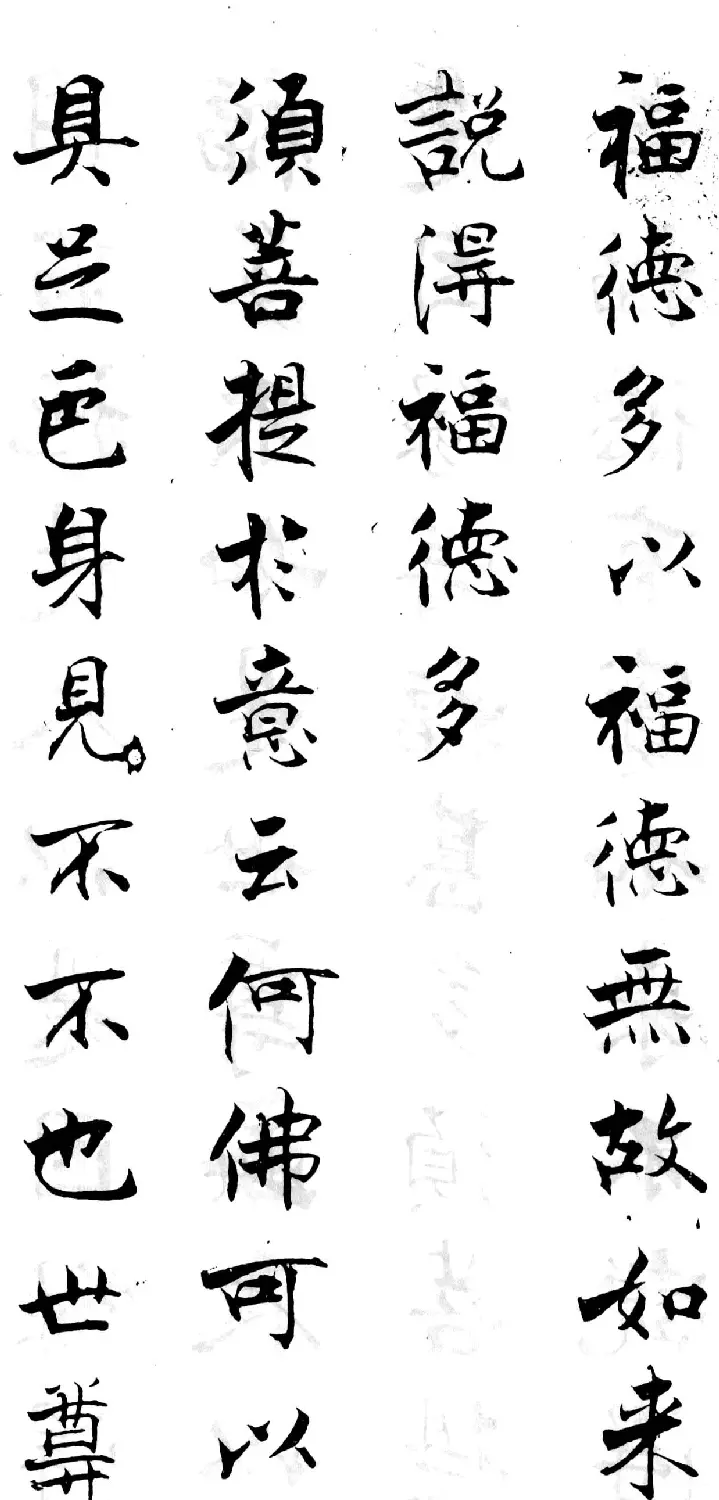 福德多以福德無故如来
説得福德多
須菩提於意云何佛可以
具足色身見。不不也世尊